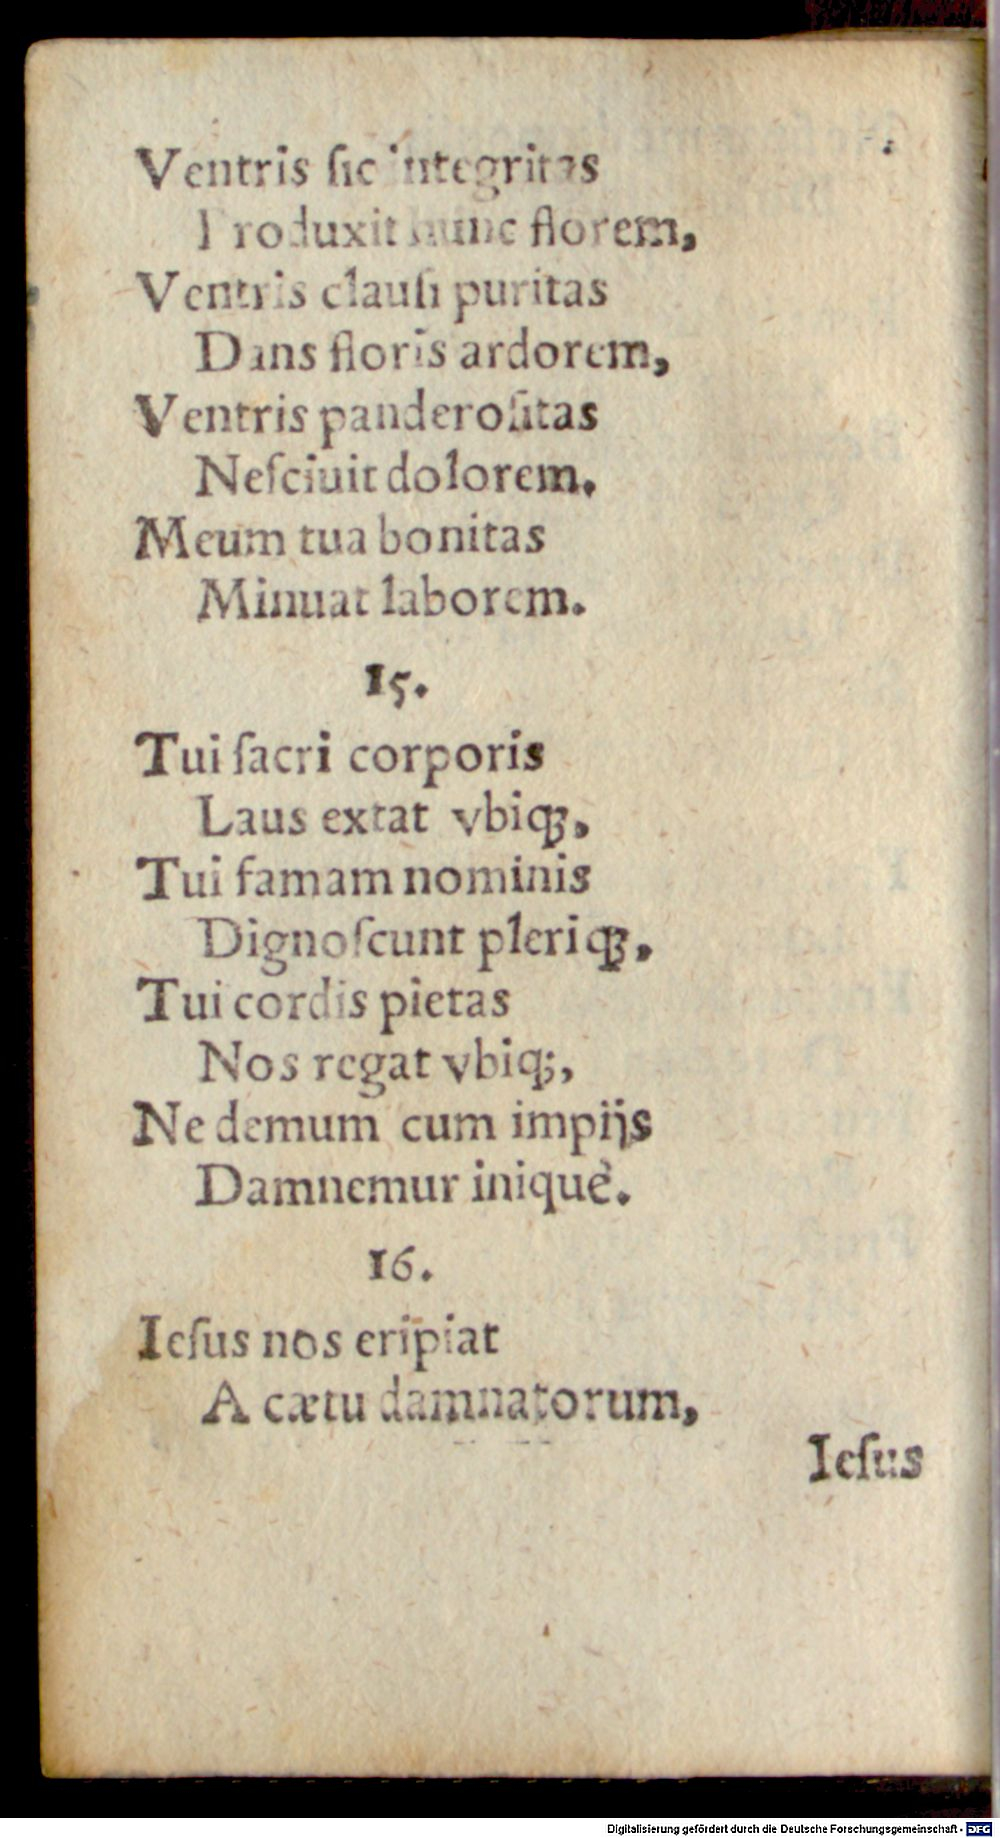 Ventris ſic integritas
Produxit hunc florem,
Ventris clauſi puritas
Dans floris ardorem,
Ventris panderoſitas
Neſciuit dolorem.
Meum tua bonitas
Minuat laborem.
15.
Tui ſacri corporis
Laus extat vbiqꝫ.
Tui famam nominis
Dignoſcunt pleriqꝫ.
Tui cordis pietas
Nos regat vbiq;,
Ne demum cum impijs
Damnemur iniquè.
16.
Ieſus nos eripiat
A cætu damnatorum,
Ieſus
Digitalisierung gefördert durch die Deutsche Forschungsgemeinschaft - DFG